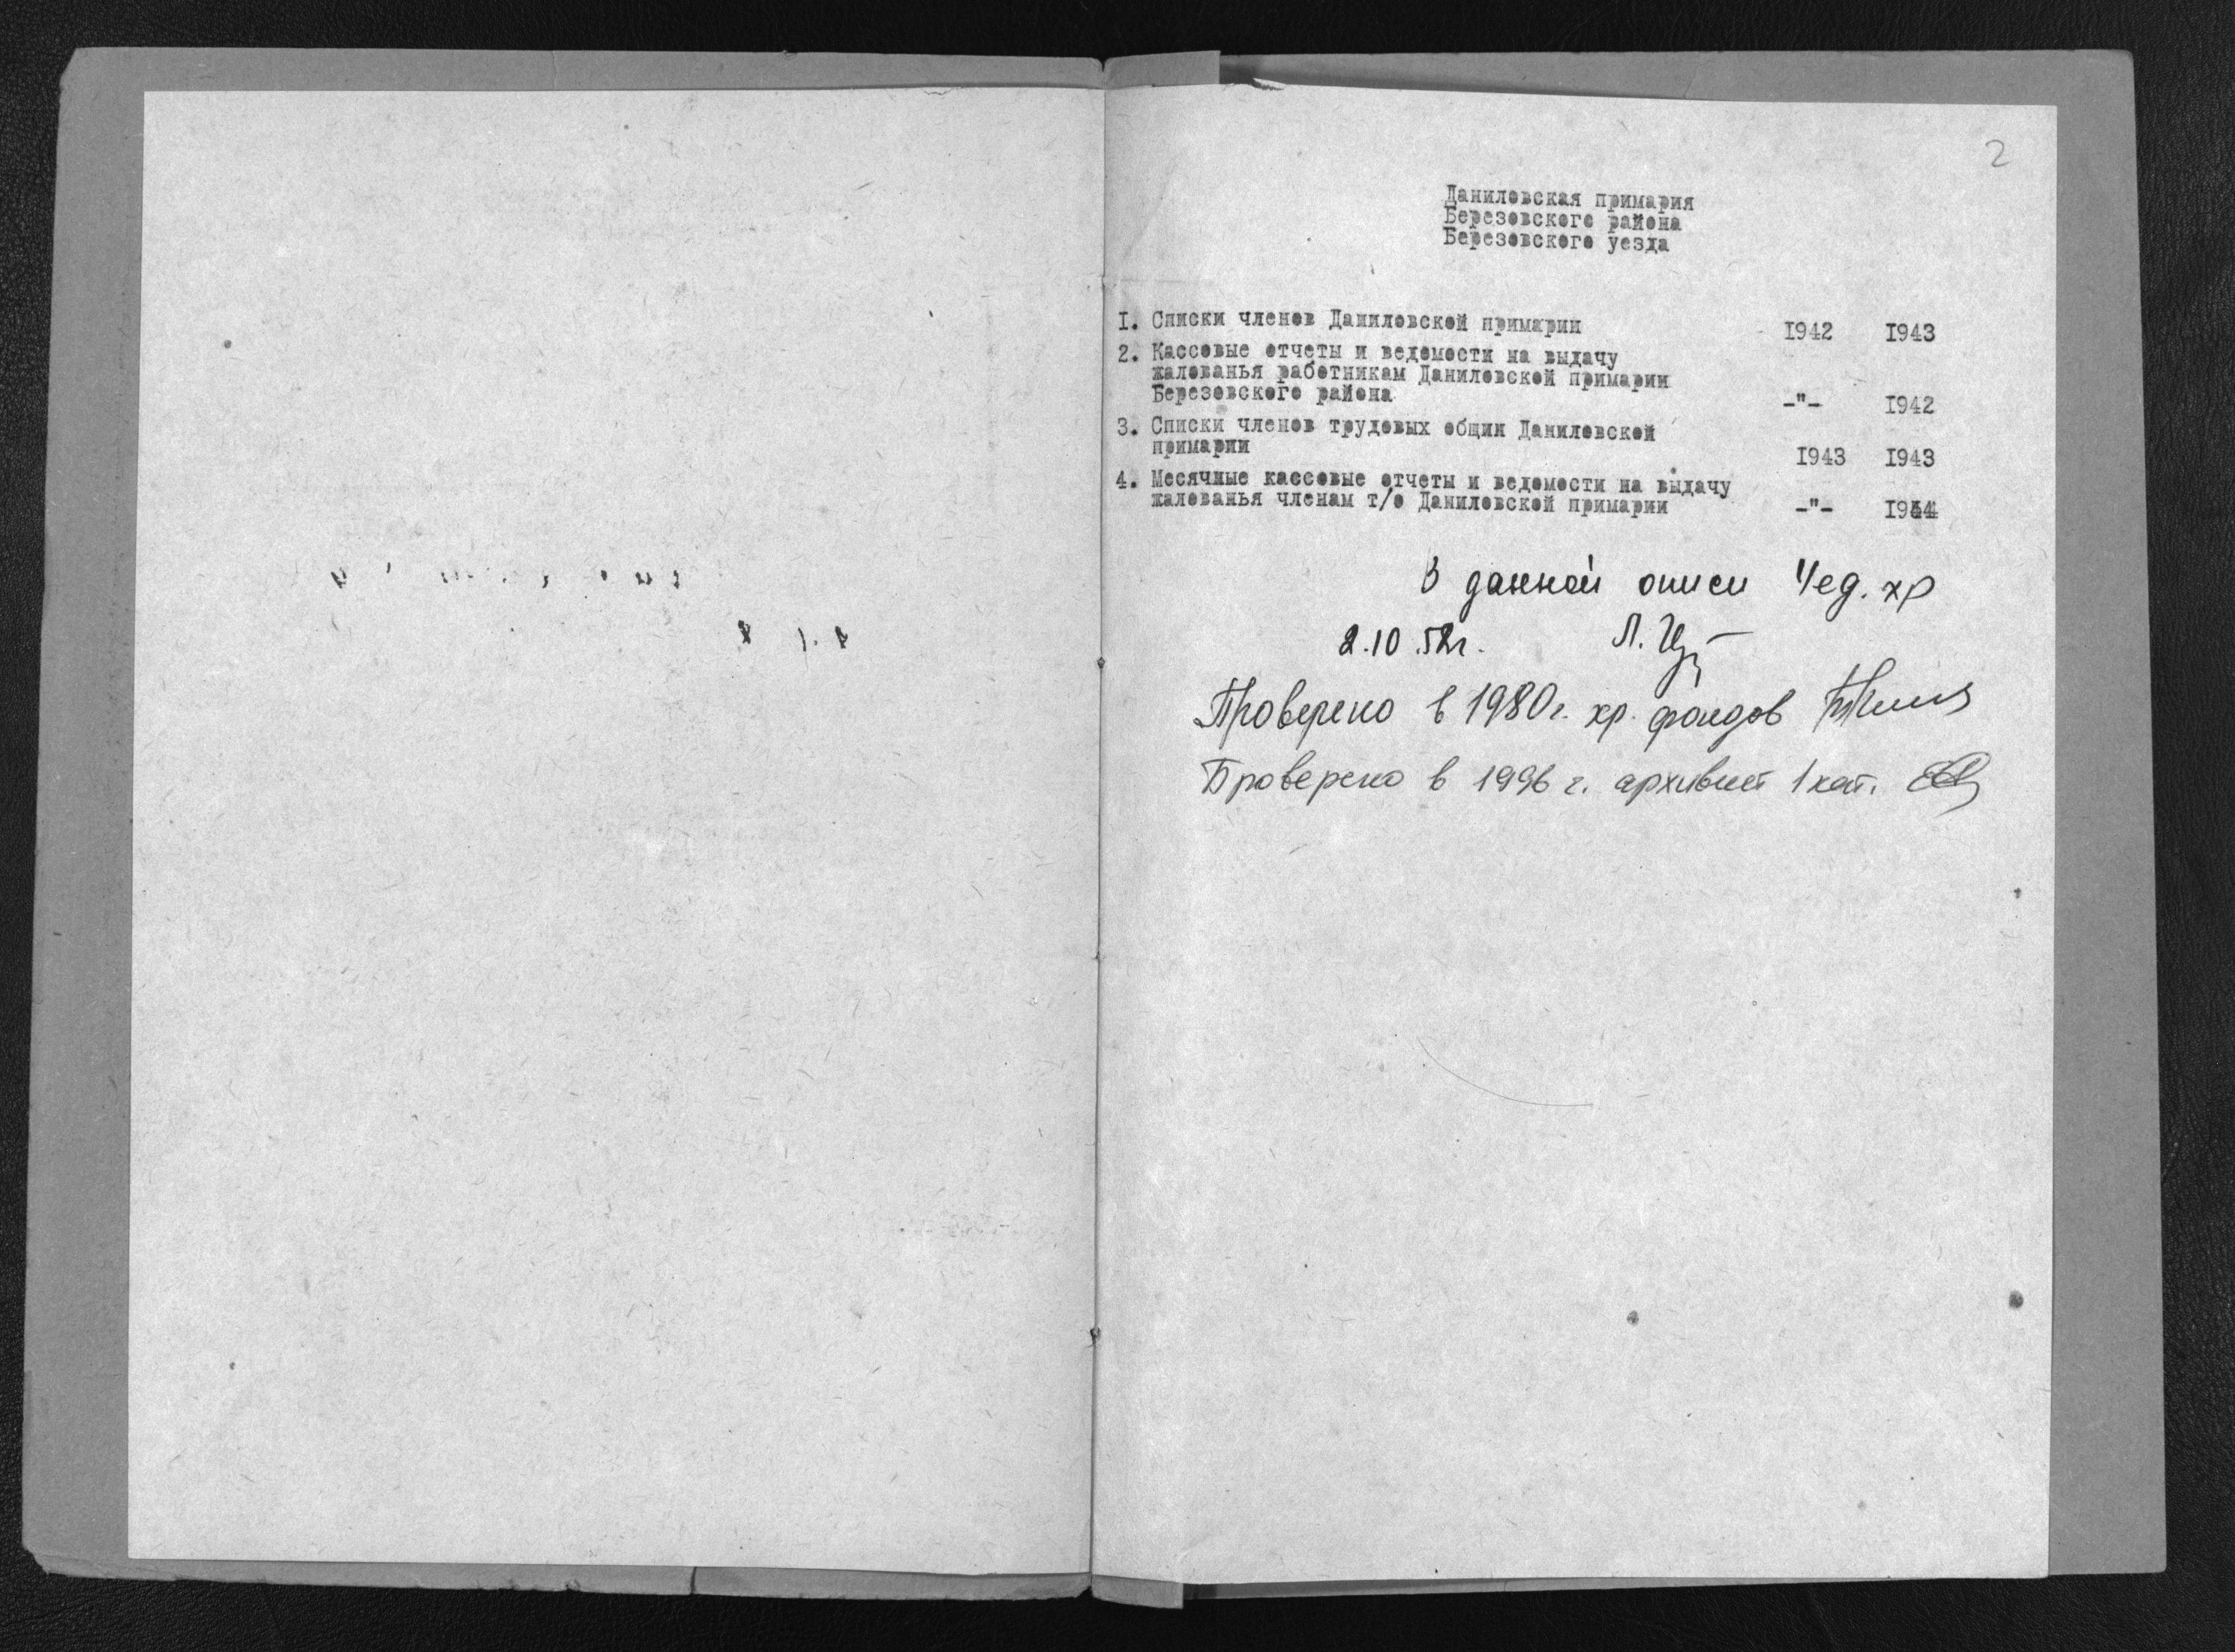 2
Даниловская примария
Березовского района
Березовского уезда
I. Списки членов Даниловской примарии 1942 1943
2. Кассовые отчеты и ведомости на выдачу
жалованья работникам Даниловской примарии
Березовского района -"- 1942
3. Списки членов трудовых общин Даниловской
примарии 1943 1943
4. Месячные кассовые отчеты и ведомости на выдачу
жалованья членам т/о Даниловской примарии -"- 1944
В данной описи 4 ед. хр
2.10.52г. Л.
Проверено в 1980г. хр. фондов
Проверено в 1996 г. архивист 1 кат.